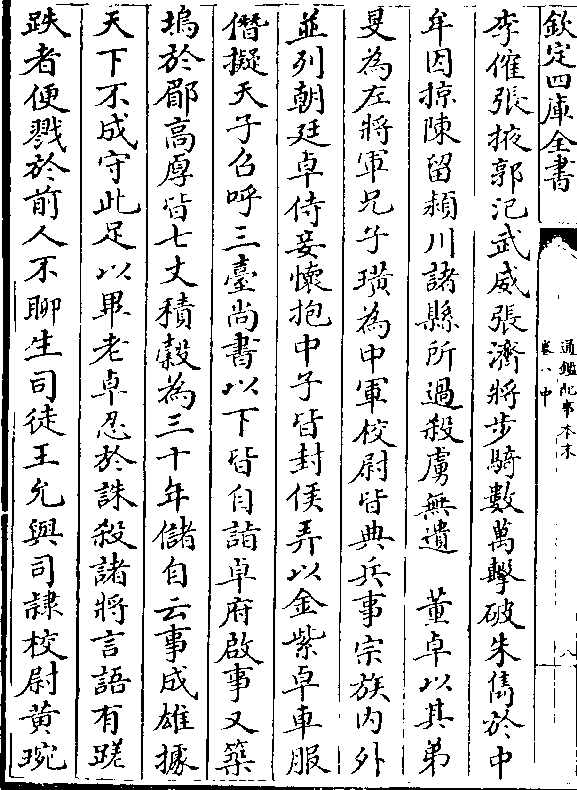 欽定四庫全書
通鑑紀事本末
卷八中
八
李傕張掖郭汜武威張濟將步騎數萬擊破朱儁於中
牟因掠陳留潁川諸縣所過殺虜無遺　董卓以其弟
旻為左將軍兄子璜為中軍校尉皆典兵事宗族内外
並列朝廷卓侍妾懷抱中子皆封侯弄以金紫卓車服
僭擬天子召呼三臺尚書以下皆自詣卓府啟事又築
塢於郿高厚皆七丈積穀為三十年儲自云事成雄據
天下不成守此足以畢老卓忍於誅殺諸將言語有蹉
跌者便戮於前人不聊生司徒王允與司隸校尉黃琬